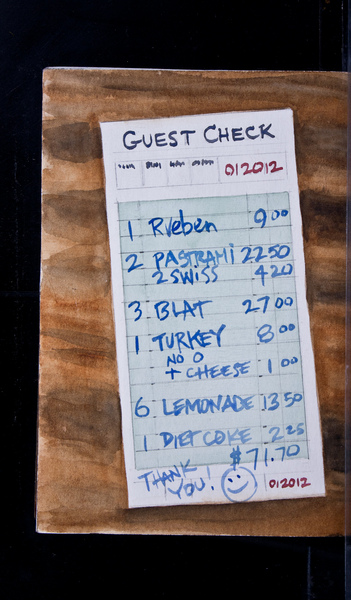 GUEST CHECK
012012
1 Rueben 9 00
2 PASTRAMI 22 50
2 SWISS 4 20
3 BLAT 27 00
1 TURKEY 8 00
NO O
+ CHEESE 1 00
6 LEMONADE 13 50
1 DIET COKE 2 25
$71.70
THANK
YOU!
012012